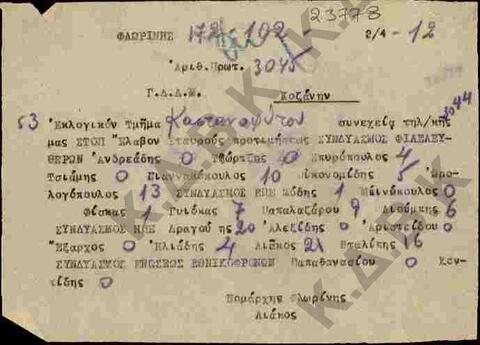 23778
ΦΛΩΡΙΝΗΣ 172-102 2/4-12
Αριθ.Πρωτ. 3045
Γ.Δ.Δ.Μ. Κοζάνην
3044
53 Εκλογικόν Τμήμα Καστανοφύτου συνεχεία τηλ/κής
μας ΣΤΟΠ Έλαβον Σταυρούς προτιμήσεως ΣΥΝΔΥΑΣΜΟΣ ΦΙΛΕΛΕΥ-
ΘΕΡΩΝ Ανδρεάδης 0 Τζώρτζης 0 Σπυρόπουλος 4
Τσιάμης 0 Γιαννακόπουλος 10 Οικονομίδης 5 Ωρο-
λογόπουλος 13 ΣΥΝΔΥΑΣΜΟΣ ΕΠΕΚ 1 0
Φίσκας 1 Γυιόκας 7 Παπαλαζάρου 9 Λιούμπης 6
ΣΥΝΔΥΑΣΜΟΣ ΗΠΕ Δραγούμης 20 Αλεξίδης 0 Αριστείδου 0
Έξαρχος 0 Ηλιάδης 4 Λιάκος 21 Νταλίπης 16
ΣΥΝΔΥΑΣΜΟΣ ΕΝΩΣΕΩΣ ΕΘΝΙΚΟΦΡΟΝΩΝ Παπαθανασίου 0 Κον-
τίδης 0
Νομάρχης Φλωρίνης
Λιάκος
Κ.Δ.Β.Κ.